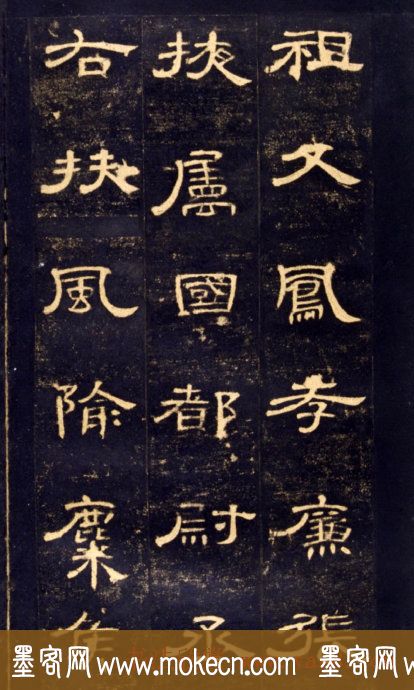 祖父鳳孝廉張
掖屬國都尉丞
右扶風隃麋侯
墨客网 www.mokecn.com 墨客网